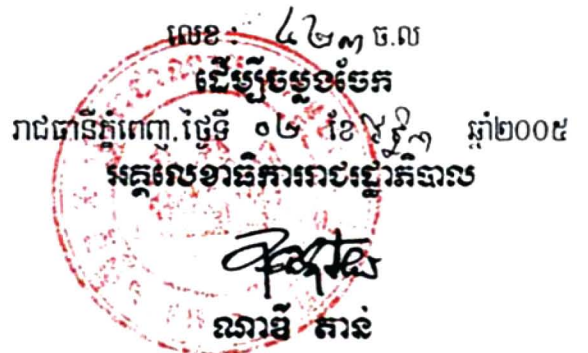 លេខ : ៤២៣ ច.ល
ដើម្បីចម្លងចែក
រាជធានីភ្នំពេញ.ថ្ងៃទី ០២ ខែ ឆ្នាំ២០០៥
អគ្គលេខាធិការរាជរដ្ឋាភិបាល
ណាឌី តាន់